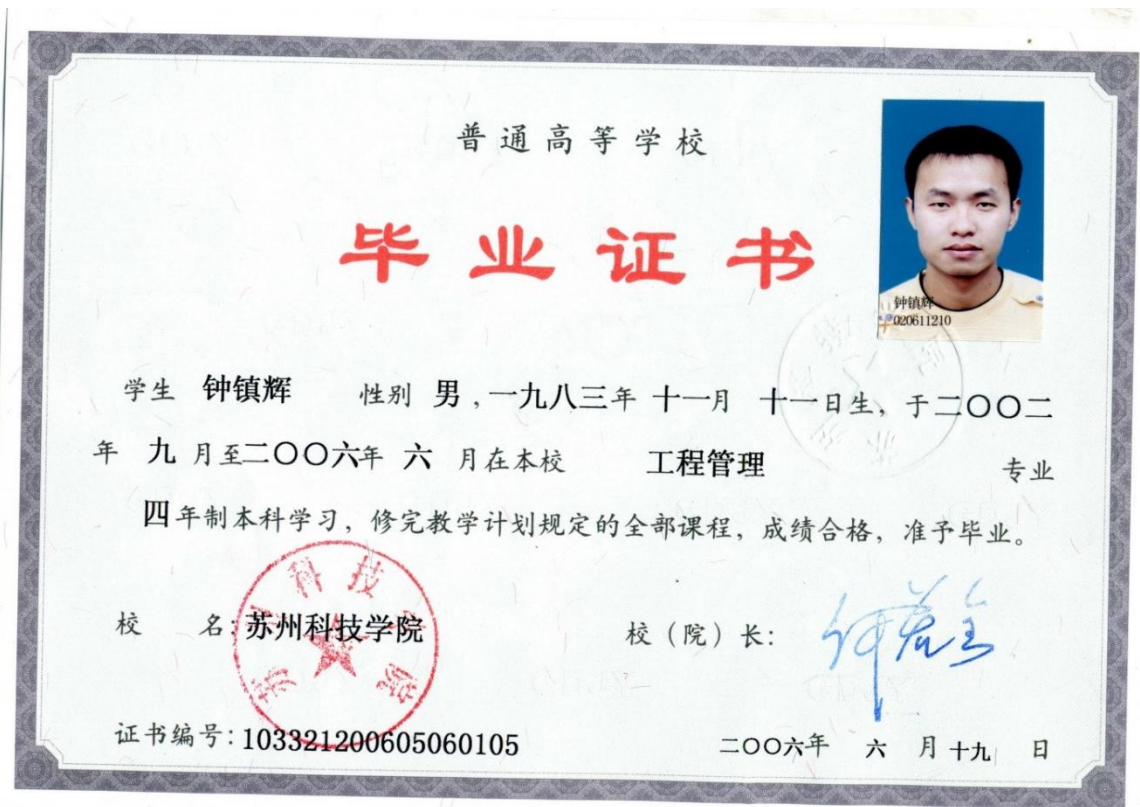 普通高等学校
毕业证书
钟镇辉
020611210
学生 钟镇辉 性别 男，一九八三年 十一月 十一日生，于二〇〇二
年 九 月至二〇〇六年 六 月在本校 工程管理 专业
四年制本科学习，修完教学计划规定的全部课程，成绩合格，准予毕业。
校 名：苏州科技学院 校（院）长：
苏州科技学院
证书编号：103321200605060105 二〇〇六年 六 月十九 日